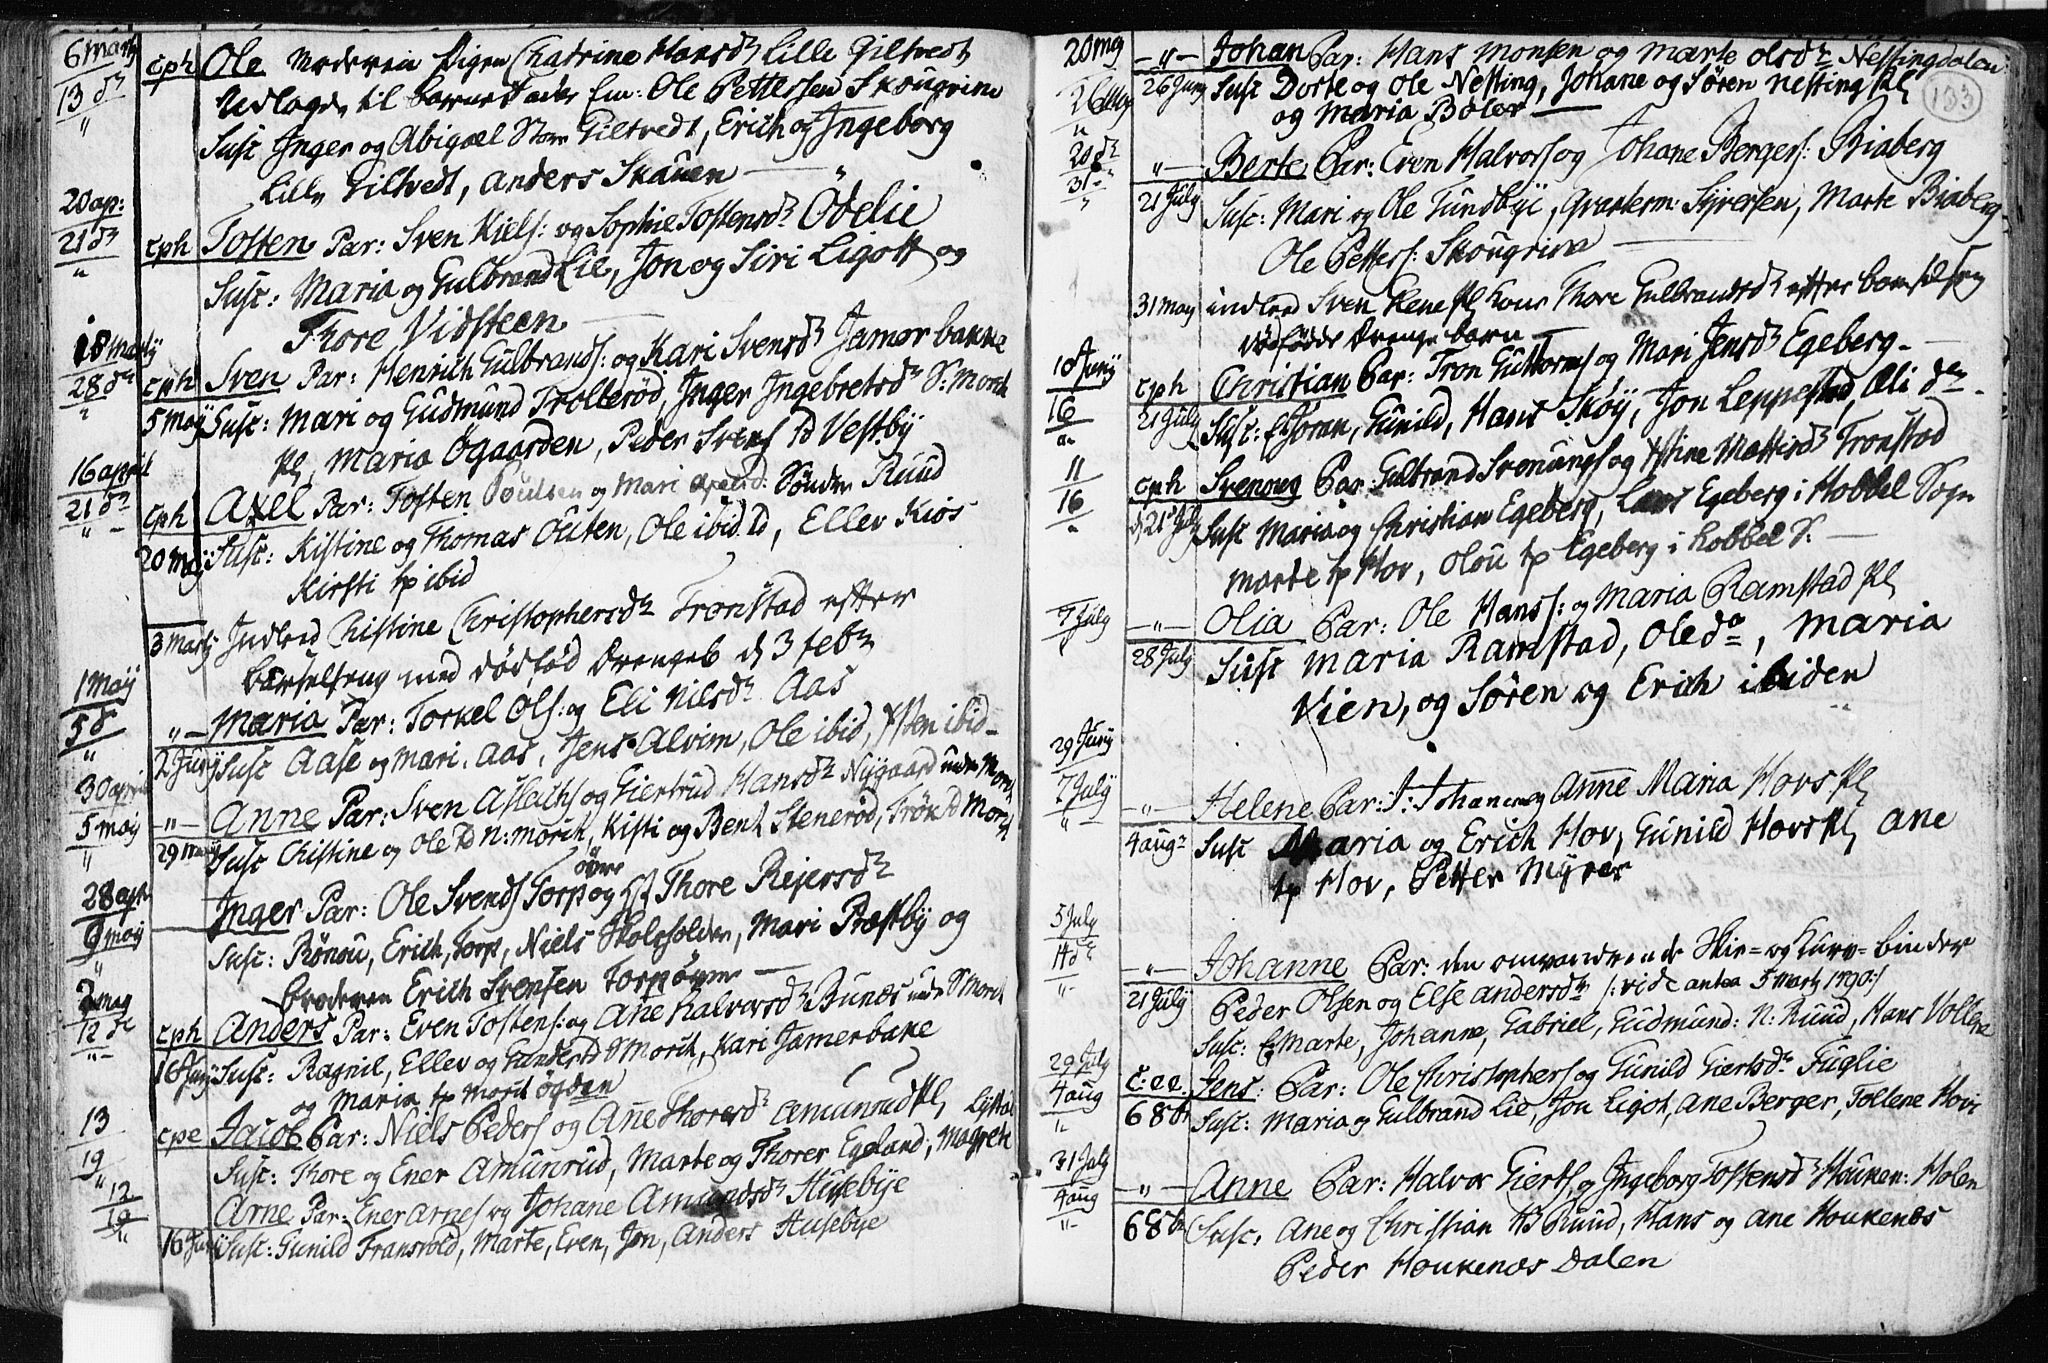 6 marty cph Ole Moderen Pigen Chatrine Hansdr Lille Giltvedt
13 dn Udlagde til barnet fader Em: Ole Pettersen Skougrim
Susc Inger og Abigæl Store Giltvedt, Erich og Ingeborg
Lille Giltvedt, Anders Skauen
20 ap:
21 dn cph Tosten Par: Sven Kiels: og Sophie Tostensdr Ødelie
Susc: Maria og Gulbrand Lie, Jon og Siri Ligott og
Thore Vidsteen
18 marty
28 dn cph Sven Par: Henrich Gulbrands: og Kari Svensdr Jamerbakke
5 maÿ Susc: Mari og Gudmund Trollerød, Inger Ingebretsdr S: Morch
Pl, Maria Øgaarden, Peder Svens Vestbÿ
16 april
21 dn cph Axel Par: Tosten Poulsen og Mari Axelsd: Søndre Ruud
20 maÿ Susc: Kistine og Thomas Outen, Ole ibid, Ellev Kios
Kirsti tp ibid
3 marty Indled Christine Christophersdr Tronstad efter
Barselseng med dødfød drengeb d 3 febr
1 maÿ
5 d „ Maria Par: Torkel Ols: og Eli Nilsdr Aas
2 Junÿ Susc Aase og Mari Aas, Jens Alvim, Ole ibid, ibid
30 april
5 moÿ „ Anne Par: Sven Aslachs og Giertrud Hansdr Nÿgaard under Morch
29 Susc Christine og Ole N: morch, Kisti og Bent Stenerød, Morch
28 apr øvre
9 moÿ Inger Par: Ole Svends Torp og Thore Rejersdr
Susc: Rønou, Erich Torp, Niels Skoleholder, Mari Præstbÿ og
broderen Erich Svensen Torp øvre
2 maÿ
12 dt cph Anders Par: Even Tostens: og Ane Halvorsdr Bunæs under S Morch
16 Junÿ Susc: Ragnil, Ellev og Gunder S Morch, Kari Jamerbake
og Maria tp Morch øgden
13 cpe Jacob Par: Niels Peders og Ane Thoresdr Amunrud Pl
19 „ Susc: Thore og Ener Amunrud, Marte og Thorer Egeland, Magrete
12 Arne Par: Ener Arnes og Johane Amundsdr Husebÿe
19 „ 16 Susc: Gunild Fransvold, Marte, Even, Jon, Anders Husebÿe
133
20 maÿ „ Johan Par: Hans Monsen og Marte Olsdr Nessingdalen
26 26 Junÿ Susc Dorte og Ole Nessing, Johane og Søren Nessing Pl
og Maria Boler
20 dn „ Berte Par: Even Halvors og Johane Bergers: Biaberg
31 „ 21 Julÿ Susc: Mari og Ole Gundbÿe, Syversen, Marte Biaberg
Ole Petters: Skougrim
31 maÿ indled Sven Pl kone Thore Gulbrandsdr efter barselseng
dødfødde Drenge barn
10 Junÿ cph Christian Par: Tron Guttorms og Mari Jensdr Egeberg
16 21 Julÿ Susc: Joran, Gunild, Hans Skøÿ, Jon Leppestad, Eli
11 cph Svenoug Par: Gulbrand Svenungs og Stine Mattisdr Tronstad
16 „ d 21 Julÿ Susc Maria og Christian Egeberg, Lars Egeberg i Hobbel Sogn
Marte tp Hov, Olou tp Egeberg i Hobbel S.
7 Julÿ „ Olia Par: Ole Hans: og Maria Ramstad Pl
28 Julÿ Susc Maria Ramstad, Ole do, Maria
Vien, og Søren og Erich ibiden
29 Junÿ
7 Julÿ „ Helene Par: J: Johan og Anne Maria Hovs Pl
4 augs Susc Maria og Erich Hov, Gunild Hovs Pl, Ane
tp Hov, Petter Mÿrer
5 July
14 dn „ Johanne Par: den omvandrende Skie- og Kurv-binder
21 Julÿ Peder Olsen og Else Andersdr /: vide antea 5 Marty 1790 :/
Susc: Marte, Johanne, Gabriel, Gudmund: N: Ruud, Hans Vollene
29 July c:ee. Jens Par: Ole Christophers og Gunild Giertsdr Fuglie
4 aug 6 8br Susc: Maria og Gulbrand Lie, Jon Ligot, Ane Berger, Tollene Hovi
31 Julÿ „ Anne Par: Halvor Gierts og Ingeborg Tostensdr Houken: Holen
4 aug „ 6 8br Susc, Ane og Christian Ruud, Hans og Ane Houkenæs
Peder Houkenæs Dalen